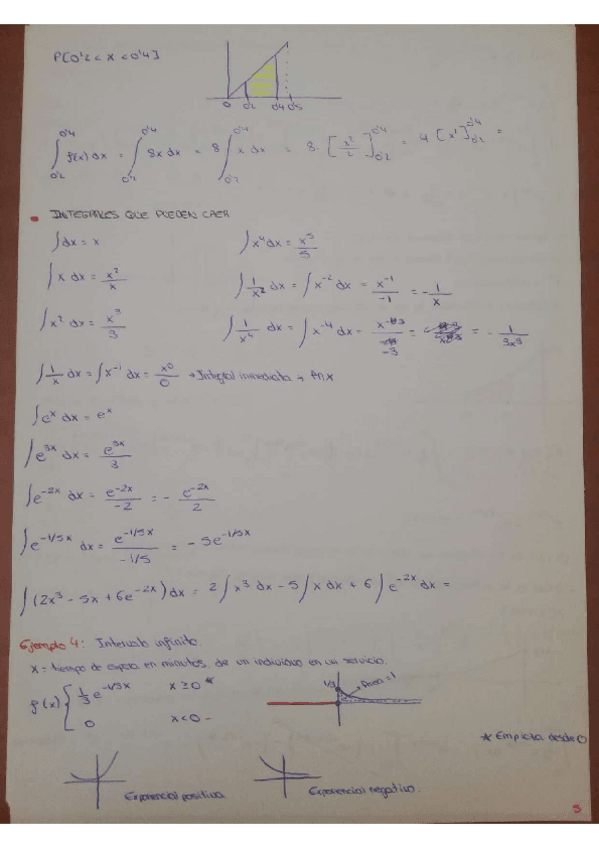 P[0'2 < x < 0'4]
0 0'2 0'4 0'5
∫_{0'2}^{0'4} f(x) dx = ∫_{0'2}^{0'4} 8x dx = 8 ∫_{0'2}^{0'4} x dx = 8 · [x²/2]_{0'2}^{0'4} = 4 [x²]_{0'2}^{0'4} =
INTEGRALES QUE PUEDEN CAER
∫dx = x
∫x⁴dx = x⁵/5
∫x dx = x²/x
∫1/x² dx = ∫x⁻² dx = x⁻¹/-1 = -1/x
∫x² dx = x³/3
∫1/x⁴ dx = ∫x⁻⁴ dx = x⁻³/-3 = = - 1/3x3
∫1/x dx = ∫x⁻¹ dx = x⁰/0 → Integral inmediata → ln x
∫eˣ dx = eˣ
∫e^{3x} dx = e^{3x}/3
∫e^{-2x} dx = e^{-2x}/-2 = - e^{-2x}/2
∫e^{-1/5x} dx = e^{-1/5x}/-1/5 = - 5e^{-1/5x}
∫(2x³ - 5x + 6e^{-2x}) dx = 2∫x³ dx - 5∫x dx + 6∫e^{-2x} dx =
Ejemplo 4: Intervalo infinito.
X = tiempo de espera en minutos, de un individuo en un servicio.
f(x) { 1/3 e^{-1/3x} x ≥ 0 *
0 x < 0
1/3 Área = 1
* Empieza desde 0
Exponencial positiva
Exponencial negativa.
5